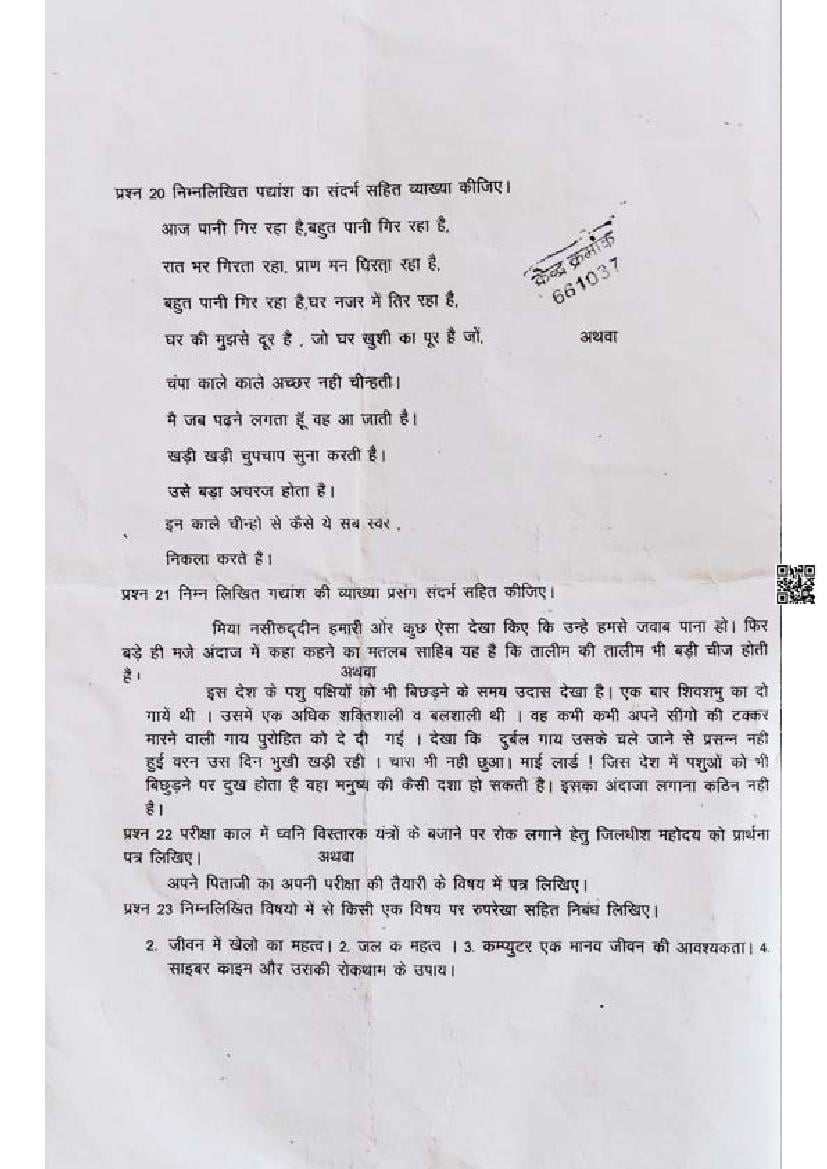 प्रश्न 20 निम्नलिखित पद्यांश का संदर्भ सहित व्याख्या कीजिए।
आज पानी गिर रहा है,बहुत पानी गिर रहा है,
रात भर गिरता रहा, प्राण मन घिरता रहा है,
केन्द्र क्रमांक
661037
बहुत पानी गिर रहा है,घर नजर में तिर रहा है,
घर की मुझसे दूर है , जो घर खुशी का पूर है जों, अथवा
चंपा काले काले अच्छर नही चीन्हती।
मै जब पढ़ने लगता हूँ वह आ जाती है।
खड़ी खड़ी चुपचाप सुना करती है।
उसे बड़ा अचरज होता है।
इन काले चीन्हो से कैसे ये सब स्वर ,
निकला करते है।
प्रश्न 21 निम्न लिखित गद्यांश की व्याख्या प्रसंग संदर्भ सहित कीजिए।
मिया नसीरुद्दीन हमारी ओर कुछ ऐसा देखा किए कि उन्हे हमसे जवाब पाना हो। फिर
बड़े ही मजे अंदाज में कहा कहने का मतलब साहिब यह है कि तालीम की तालीम भी बड़ी चीज होती
है। अथवा
इस देश के पशु पक्षियों को भी बिछड़ने के समय उदास देखा है। एक बार शिवशभु का दो
गायें थी । उसमें एक अधिक शक्तिशाली व बलशाली थी । वह कभी कभी अपने सीगो की टक्कर
मारने वाली गाय पुरोहित को दे दी गई । देखा कि दुर्बल गाय उसके चले जाने से प्रसन्न नही
हुई वरन उस दिन भुखी खड़ी रही । चारा भी नही छुआ। माई लार्ड ! जिस देश में पशुओं को भी
बिछुड़ने पर दुख होता है वहा मनुष्य की कैसी दशा हो सकती है। इसका अंदाजा लगाना कठिन नही
है।
प्रश्न 22 परीक्षा काल में ध्वनि विस्तारक यंत्रों के बजाने पर रोक लगाने हेतु जिलधीश महोदय को प्रार्थना
पत्र लिखिए। अथवा
अपने पिताजी का अपनी परीक्षा की तैयारी के विषय में पत्र लिखिए।
प्रश्न 23 निम्नलिखित विषयो में से किसी एक विषय पर रुपरेखा सहित निबंध लिखिए।
2. जीवन में खेलो का महत्व। 2. जल क महत्व । 3. कम्प्युटर एक मानव जीवन की आवश्यकता। 4.
साइबर काइम और उसकी रोकथाम के उपाय।